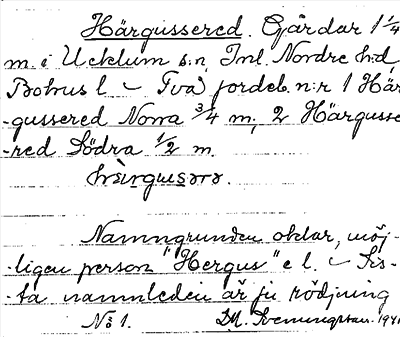 Härgussered. Gårdar 1 1/4
m. i Ucklum s:n, Inl. Nordre h:d,
Bohus l. – Två jordeb. n:r 1 Här-
-gussered Norra 3/4 m., 2 Härgusse-
-red Södra 1/2 m.
Namngrunden oklar, möj-
-ligen person "Hergus" e l. – Sis-
-ta namnleden är ju rödjning
No 1.